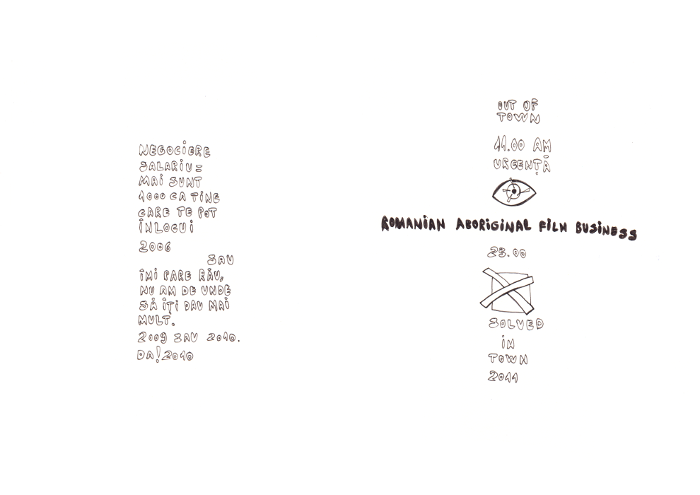 NEGOCIERE
SALARIU =
MAI SUNT
1000 CA TINE
CARE TE POT
ÎNLOCUI
2006
SAU
ÎMI PARE RĂU,
NU AM DE UNDE
SĂ ÎȚI DAU MAI
MULT.
2009 SAU 2010.
DA! 2010
OUT OF
TOWN
11.00 AM
URGENȚĂ
ROMANIAN ABORIGINAL FILM BUSINESS
23.00
SOLVED
IN
TOWN
2011